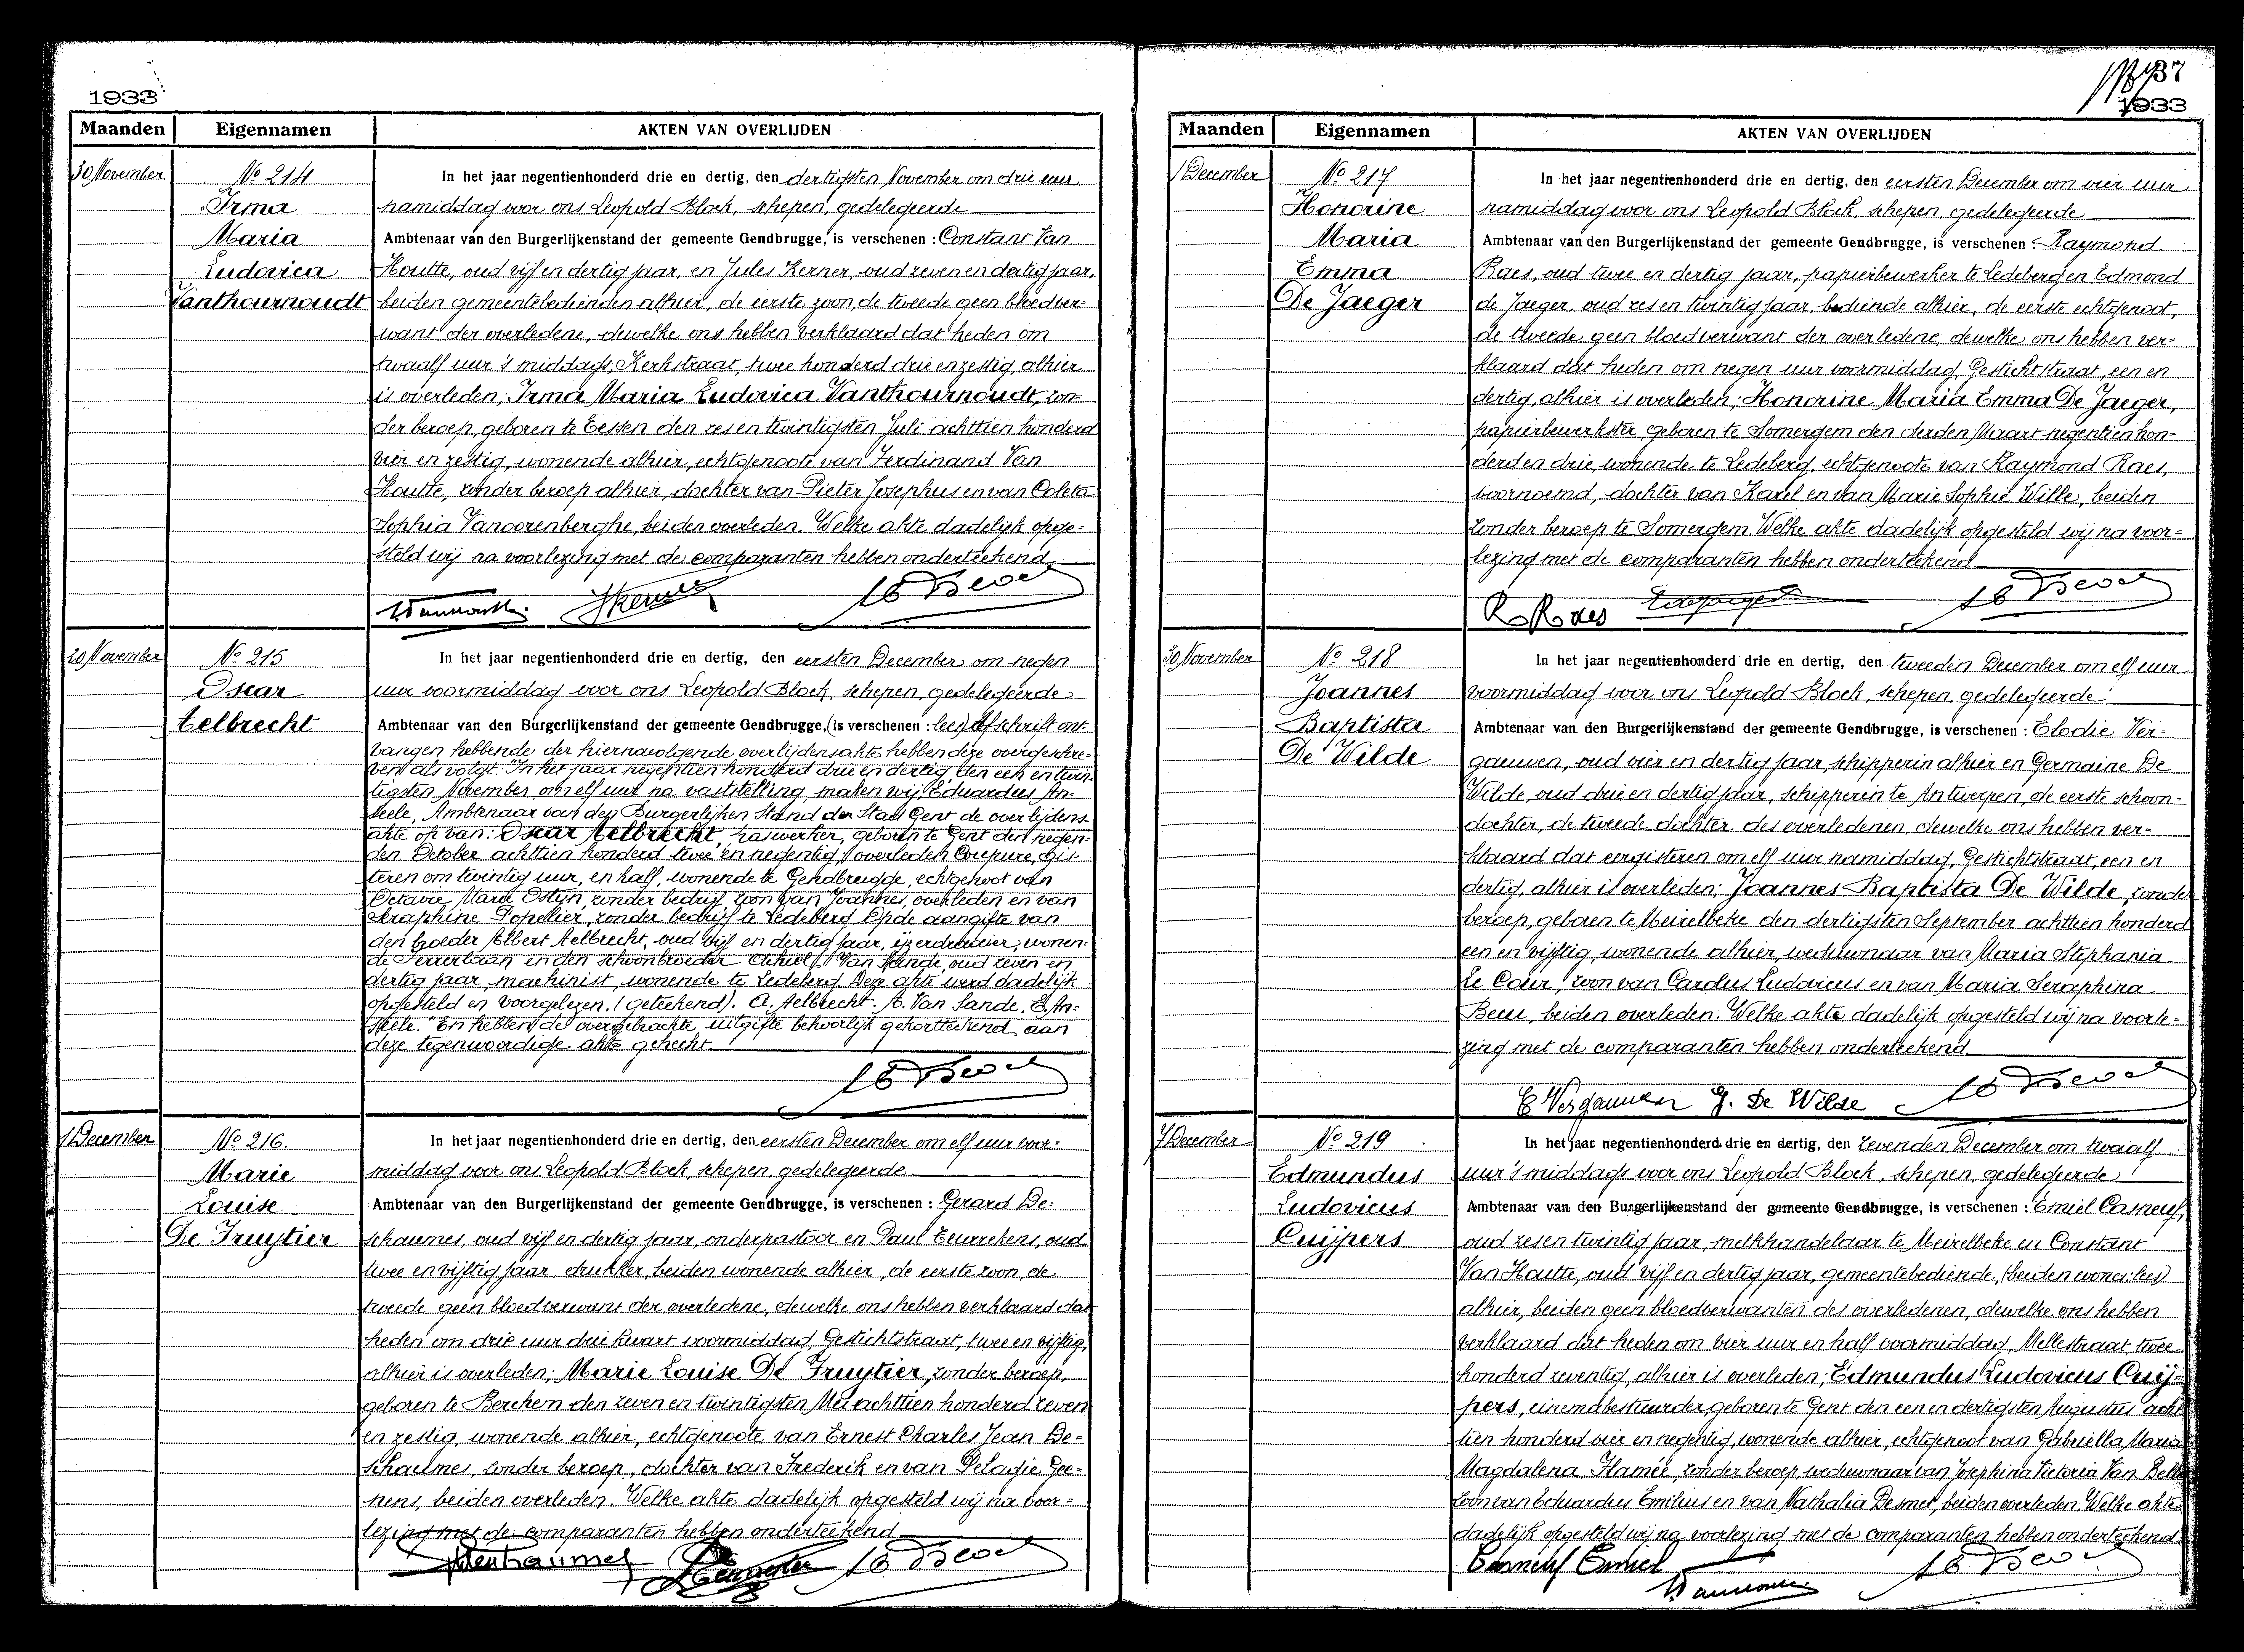 1933
Maanden Eigennamen AKTEN VAN OVERLIJDEN
30 November
No 214
Irma
Maria
Ludovica
Vanthournoudt
In het jaar negentienhonderd drie en dertig, den dertigsten November om drie uur
namiddag voor ons Leopold Block, schepen, gedelegeerde
Ambtenaar van den Burgerlijkenstand der gemeente Gendbrugge, is verschenen : Constant Van
Houtte, oud vijf en dertig jaar, en Jules Kerner, oud zeven en dertig jaar,
beiden gemeentebedienden alhier, de eerste zoon, de tweede geen bloedver-
want der overledene, dewelke ons hebben verklaard dat heden om
twaalf uur 's middags, Kerkstraat, twee honderd drie en zestig, alhier
is overleden; Irma Maria Ludovica Vanthournoudt, zon-
der beroep, geboren te Eessen den zes en twintigsten Juli achttien honderd
vier en zestig, wonende alhier, echtgenoote van Ferdinand Van
Houtte, zonder beroep alhier, dochter van Pieter Josephus en van Coleta
Sophia Vancorenberghe, beiden overleden. Welke akte dadelijk opge-
steld wij na voorlezing met de comparanten hebben onderteekend
JKerner
20 November
No 215
Oscar
Aelbrecht
In het jaar negentienhonderd drie en dertig, den eersten December om negen
uur voormiddag voor ons Leopold Block, schepen, gedelegeerde
Ambtenaar van den Burgerlijkenstand der gemeente Gendbrugge, (is verschenen : lees) Afschrift ont-
vangen hebbende der hiernavolgende overlijdensakte hebben deze overgeschre-
ven als volgt: "In het jaar negentien honderd drie en dertig, den een en twin-
tigsten November om elf uur na vaststelling, maken wij, Eduardus An-
seele, Ambtenaar van den Burgerlijken Stand der Stad Gent de overlijdens-
akte op van: Oscar Aelbrecht, gaswerker, geboren te Gent den negen-
den October achttien honderd twee en negentig, overleden Coupure, gis-
teren om twintig uur, en half, wonende te Gendbrugge, echtgenoot van
Octavie Marie Ostyn, zonder bedrijf, zoon van Joannes, overleden en van
Seraphine Popelier, zonder bedrijf te Ledeberg. Op de aangifte van
den broeder Albert Aelbrecht, oud vijf en dertig jaar, ijzerdraaier, wonen-
de en den schoonbroeder Van Sande, oud zeven en
dertig jaar, machinist, wonende te Ledeberg. Deze akte werd dadelijk
opgesteld en voorgelezen. (geteekend). A. Aelbrecht. A. Van Sande. E. An-
seele." En hebben de overgebrachte uitgifte behoorlijk gekortteekend aan
deze tegenwoordige akte gehecht.
1 December
No 216.
Marie
Louise
De Fruytier
In het jaar negentienhonderd drie en dertig, den eersten December om elf uur voor-
middag voor ons Leopold Block, schepen, gedelegeerde
Ambtenaar van den Burgerlijkenstand der gemeente Gendbrugge, is verschenen : Gerard De-
schaumes, oud vijf en dertig jaar, onderpastoor en Paul Teurrekens, oud
twee en vijftig jaar, drukker, beiden wonende alhier, de eerste zoon, de
tweede geen bloedverwant der overledene, dewelke ons hebben verklaard dat
heden om drie uur drie kwart voormiddag, Gestichtstraat, twee en vijftig,
alhier is overleden; Marie Louise De Fruytier, zonder beroep,
geboren te Berchem den zeven en twintigsten Mei achttien honderd zeven
en zestig, wonende alhier, echtgenoote van Ernest Charles Jean De-
schaumes, zonder beroep, dochter van Frederik en van Pelagie Gee-
nens, beiden overleden. Welke akte dadelijk opgesteld wij na voor-
lezing met de comparanten hebben onderteekend
37
1933
Maanden Eigennamen AKTEN VAN OVERLIJDEN
1 December
No 217
Honorine
Maria
Emma
De Jaeger
In het jaar negentienhonderd drie en dertig, den eersten December om vier uur
namiddag voor ons Leopold Block, schepen, gedelegeerde
Ambtenaar van den Burgerlijkenstand der gemeente Gendbrugge, is verschenen : Raymond
Raes, oud twee en dertig jaar, papierbewerker te Ledeberg en Edmond
de Jaeger, oud zes en twintig jaar, bediende alhier, de eerste echtgenoot,
de tweede geen bloedverwant der overledene, dewelke ons hebben ver-
klaard dat heden om negen uur voormiddag, Gestichtstraat, een en
dertig, alhier is overleden, Honorine Maria Emma De Jaeger,
papierbewerkster, geboren te Somergem den derden Maart negentien hon-
derd en drie, wonende te Ledeberg, echtgenoote van Raymond Raes,
voornoemd, dochter van Karel en van Marie Sophie Wille, beiden
zonder beroep te Somergem. Welke akte dadelijk opgesteld wij na voor-
lezing met de comparanten hebben onderteekend
R. Raes
30 November
No 218
Joannes
Baptista
De Wilde
In het jaar negentienhonderd drie en dertig, den tweeden December om elf uur
voormiddag voor ons Leopold Block, schepen, gedelegeerde
Ambtenaar van den Burgerlijkenstand der gemeente Gendbrugge, is verschenen : Elodie Ver-
gauwen, oud vier en dertig jaar, schipperin alhier en Germaine De
Wilde, oud drie en dertig jaar, schipperin te Antwerpen, de eerste schoon-
dochter, de tweede dochter des overledenen, dewelke ons hebben ver-
klaard dat eergisteren om elf uur namiddag, Gestichtstraat, een en
dertig, alhier is overleden; Joannes Baptista De Wilde, zonder
beroep, geboren te Meirelbeke den dertigsten September achttien honderd
een en vijftig, wonende alhier, weduwnaar van Maria Stephania
Le Cour, zoon van Carolus Ludovicus en van Maria Seraphina
Beus, beiden overleden. Welke akte dadelijk opgesteld wij na voorle-
zing met de comparanten hebben onderteekend.
E Vergauwen G. De Wilde
7 December
No 219
Edmundus
Ludovicus
Cuijpers
In het jaar negentienhonderd drie en dertig, den zevenden December om twaalf
uur 's middags voor ons Leopold Block, schepen, gedelegeerde
Ambtenaar van den Burgerlijkenstand der gemeente Gendbrugge, is verschenen : Emiel Casneuf,
oud zes en twintig jaar, melkhandelaar te Meirelbeke en Constant
Van Houtte, oud vijf en dertig jaar, gemeentebediende, (beiden wonen: lees)
alhier, beiden geen bloedverwanten des overledenen, dewelke ons hebben
verklaard dat heden om vier uur en half voormiddag, Mellestraat, twee
honderd zeventig, alhier is overleden; Edmundus Ludovicus Cuij-
pers, cinemabestuurder, geboren te Gent den een en dertigsten Augustus acht
tien honderd vier en negentig, wonende alhier, echtgenoot van Gabriella Maria
Magdalena Hamée, zonder beroep, weduwnaar van Josephina Victoria Van Belle
zoon van Eduardus Emilius en van Nathalia Desmet, beiden overleden. Welke akte
dadelijk opgesteld wij na voorlezing met de comparanten hebben onderteekend.
Casneuf Emiel